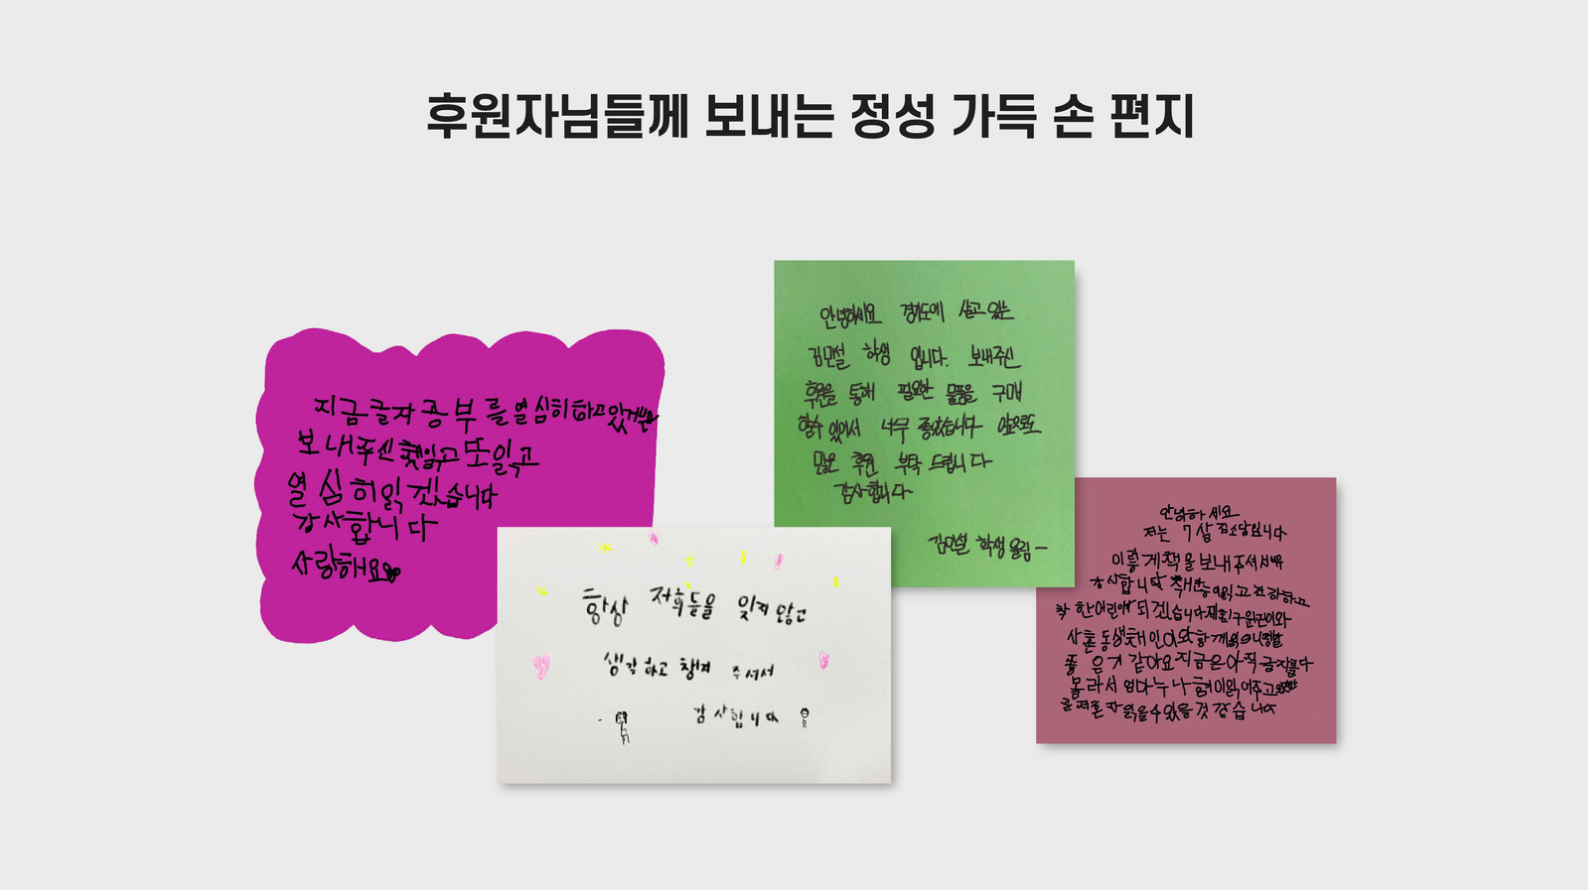 후원자님들께 보내는 정성 가득 손 편지
지금글자 공부를열심히하고있거든
보내주신책읽고또읽고
열심히읽겠습니다
감사합니다
사랑해요
항상 저희들을 잊지 않고
생각하고 챙겨 주셔서
감사합니다
안녕하세요 경기도에 살고 있는
김민설 학생 입니다. 보내주신
후원을 통해 필요한 물품을 구매
할수 있어서 너무 좋았습니다 앞으로도
많은 후원 부탁 드립니다
감사합니다
김민설 학생 올림 -
안녕하세요
저는 7살
이렇게책을보내주셔서
감사합니다 읽고
착한어린이가되겠습니다
사촌동생
좋은거 같아요지금은아직글자를다
몰라서 엄마누나 이읽어주고
읽을수있을것같습니다